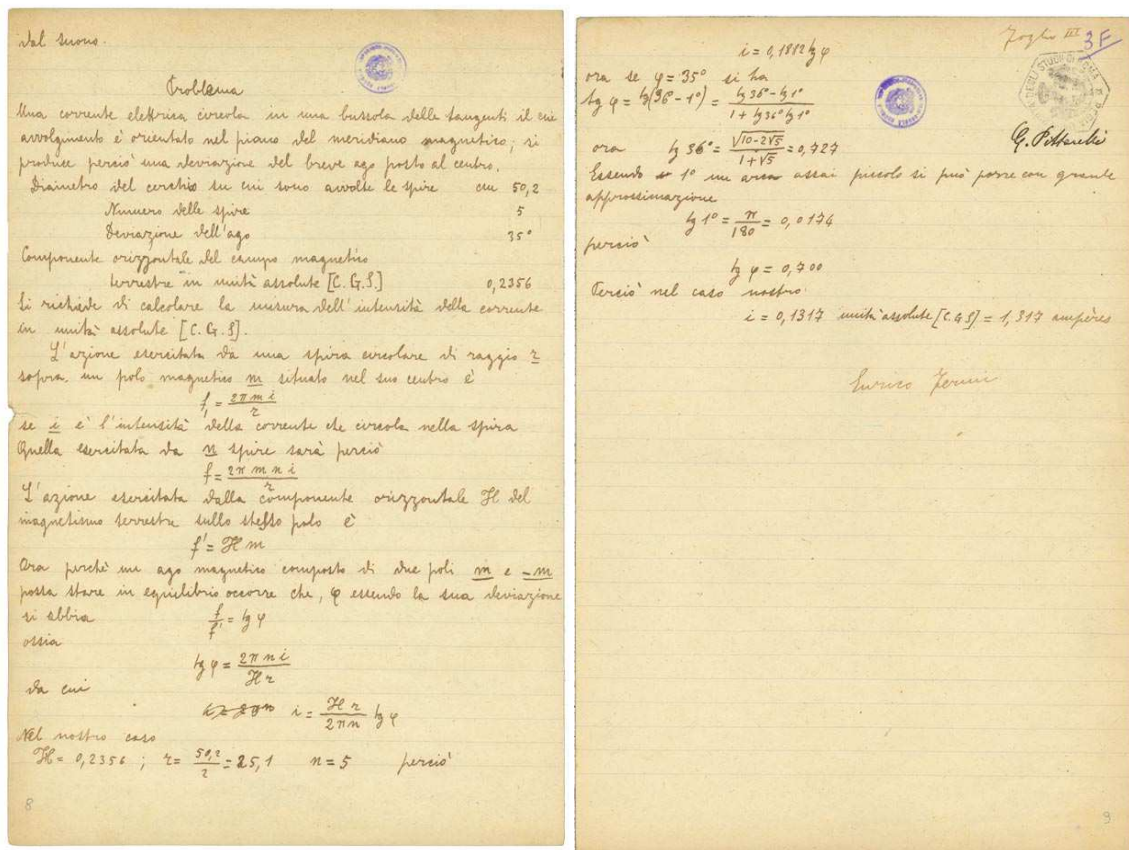 dal suono.
Problema
Una corrente elettrica circola in una bussola delle tangenti il cui
avvolgimento è orientato nel piano del meridiano magnetico; si
produce perciò una deviazione del breve ago posto al centro.
Diametro del cerchio su cui sono avvolte le spire cm 50,2
Numero delle spire 5
Deviazione dell'ago 35°
Componente orizzontale del campo magnetico
terrestre in unità assolute [C.G.S.] 0,2356
Si richiede di calcolare la misura dell'intensità della corrente
in unità assolute [C.G.S].
L'azione esercitata da una spira circolare di raggio r
sopra un polo magnetico m situato nel suo centro è
f₁ = 2π m i / r
se i è l'intensità della corrente che circola nella spira
Quella esercitata da n spire sarà perciò
f = 2π m n i / r
L'azione esercitata dalla componente orizzontale H del
magnetismo terrestre sullo stesso polo è
f' = H m
Ora perchè un ago magnetico composto di due poli m e -m
possa stare in equilibrio occorre che, φ essendo la sua deviazione
si abbia f / f' = tg φ
ossia
tg φ = 2π n i / H r
da cui
i = H r / 2π n tg φ
Nel nostro caso
H = 0,2356 ; r = 50,2 / 2 = 25,1 n = 5 perciò
8
Foglio III 3F
i = 0,1882 tg φ
ora se φ = 35° si ha
tg φ = tg(36° - 1°) = tg 36° - tg 1° / 1 + tg 36° tg 1°
G. Pittarelli
ora tg 36° = √10-2√5 / 1+√5 = 0,727
Essendo 1° un arco assai piccolo si può porre con grande
approssimazione
tg 1° = π / 180 = 0,0174
perciò
tg φ = 0,700
Perciò nel caso nostro:
i = 0,1317 unità assolute [C.G.S] = 1,317 ampères
Enrico Fermi
9